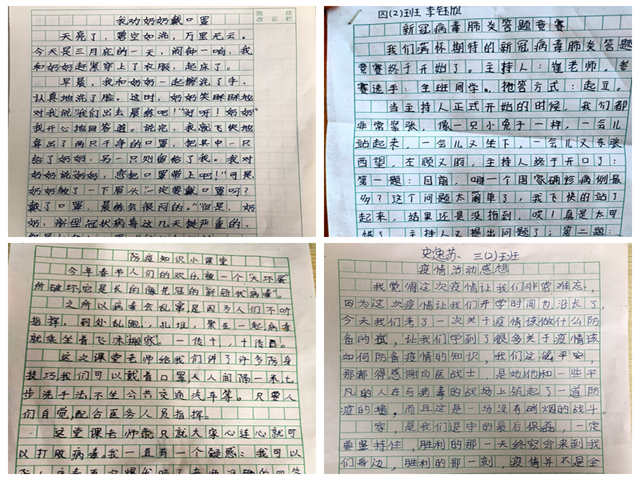 我劝奶奶戴口罩
天亮了,碧空如洗,万里无云。
今天是三月底的一天,闹钟一响,我
和奶奶赶紧穿上了衣服,起床了。
早晨,我和奶奶一起擦洗了手,
认真地洗了脸。这时,奶奶笑眯眯地
对我说我们出去晨练吧!"好呀!奶奶"
我开心地回答道。说完,我就飞快地
拿出了两只干净的口罩,把其中一只
给了奶奶,另一只则留给了我。我对
奶奶说奶奶,您把口罩带上吧!"可是
奶奶皱了一下眉头"一定要戴口罩吗?
戴了口罩,晨练会很闷的。"但是,奶
奶,新型冠状病毒这几天挺严重的,
四(2)班 李钰欣
新冠病毒肺炎答题竞赛
我们满怀期待的新冠病毒肺炎答题
竞赛终于开始了。主持人:崔老师。参
赛选手:全班同学。抢答方式:起立。
当主持人正式开始的时候,我们都
非常紧张,像一只小兔子一样,一会儿
站起来,一会儿又坐下,一会儿又东张
西望,左顾又盼,主持人终于开口了:
第一题:目前,哪一个国家确诊病例最
多?这个问题太简单了,我飞快的站了
起来,结果还是没抢到,哎!真是太可
惜了,主持人又提出问题了:第二题:
防疫知识小课堂
今年春节人们的欢乐被一个大坏蛋
所破坏它是长的像皇冠的新冠状病毒。
之所以病毒会乱窜是因为人们不听
指挥,到处乱跑,扎堆,聚在一起病毒
就乘坐着飞沫搬家。一传十,十传百。
这次课堂老师给我们讲了许多防身
技巧我们可以戴着口罩,人人间隔一米七
步洗手法不坐公共交通汽车等。只要人
们自觉配合医务人员指挥。
这堂课老师说只就大家心连心就可
以打败病毒我一直有一个疑惑:我可以
史建苏、三(2)班
疫情活动感想
我觉得这次疫情让我们非常难忘,
因为这次疫情让我们开学时间为延长了
今天我们考了一次关于疫情该做什么防
备的试,让我们学到了很多关于疫情该
如何防备疫情的知识,我们这成平安,
那都得感谢白医战士,是她们和一些平
凡的人在与病毒的战场上筑起了一道防
疫的墙。而且这是一场没有硝烟的战斗
容,是我们坚守的最后保垒,一定
要坚持住,胜利的那一天终究会来到我
们身边,胜利的那一刻,疫情并不是全